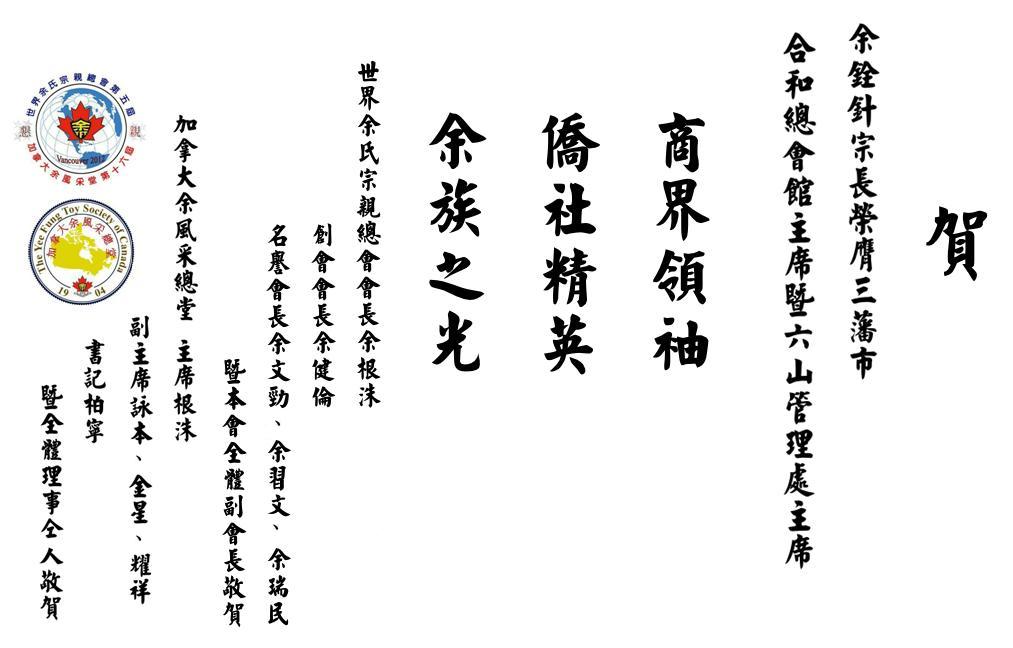 賀
余銓針宗長榮膺三藩市
合和總會館主席暨六山管理處主席
商界領袖
僑社精英
余族之光
世界余氏宗親總會會長余根洙
創會會長余健倫
名譽會長余文勁、余習文、余瑞民
暨本會全體副會長敬賀
加拿大余風采總堂 主席根洙
副主席詠本、金星、耀祥
書記柏寧
暨全體理事仝人敬賀
世界余氏宗親總會第五屆
懇親
余
Vancouver 2012
加拿大余風采堂第十六屆
The Yee Fung Toy Society of Canada
加拿大余風采總堂
1904